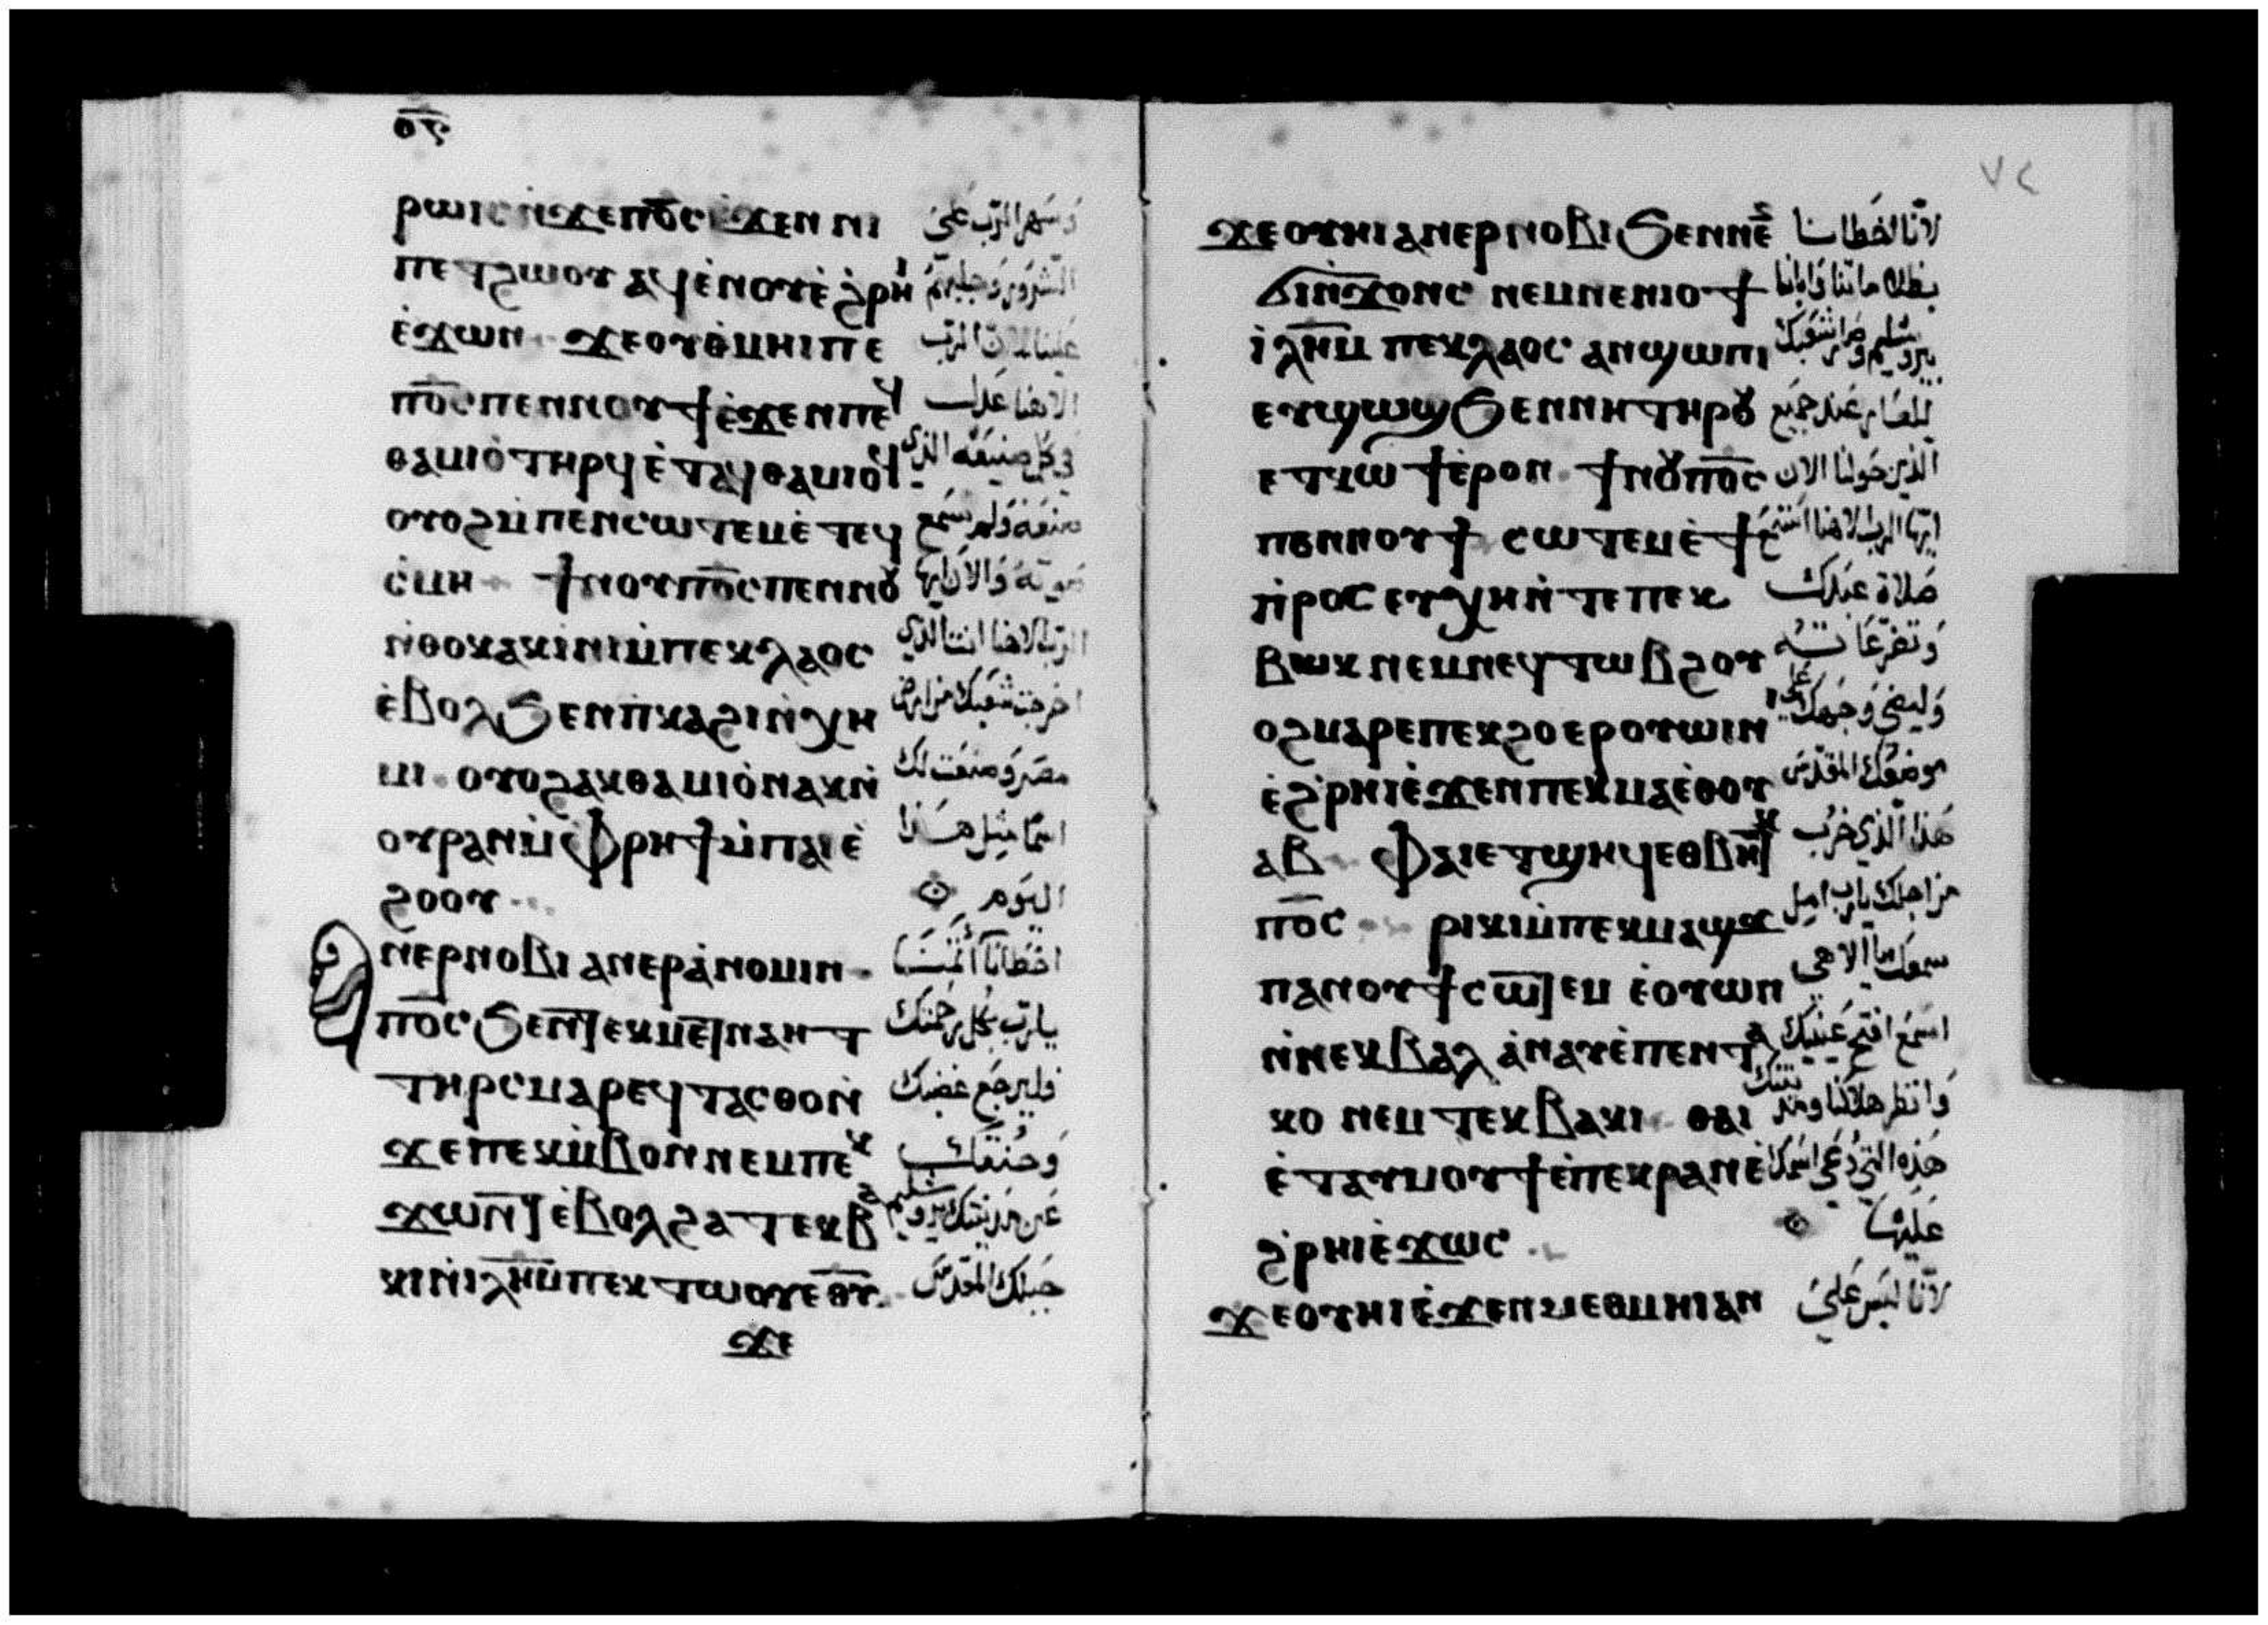 ⲟ̅ⲋ̅
ⲣⲱⲓⲥ ⲛ̀ϫⲉⲡⲟ̅ⲥ̅ ⲉ̀ϫⲉⲛ ⲛⲓ وَسَهر الرّب عَلى
ⲡⲉⲧϩⲱⲟⲩ ⲁϥⲉⲛⲟⲩ ⲉ̀ϩⲣⲏⲓ الشرور وَجلبهم
ⲉ̀ϫⲱⲛ ϫⲉⲟⲩⲑ̀ⲙⲏⲓ ⲡⲉ علينا لان الرّب
ⲡⲟ̅ⲥ̅ ⲡⲉⲛⲛⲟⲩϯ ⲉ̀ϫⲉⲛ ⲡⲉϥ الاهنا عَدل
ⲑⲁⲙⲓⲟ̀ ⲧⲏⲣϥ ⲉ̀ⲧⲁϥⲑⲁⲙⲓⲟϥ في كل صنيعَه الذي
ⲟⲩⲟϩ ⲙ̀ⲡⲉⲛⲥⲱⲧⲉⲙ ⲉ̀ⲧⲉϥ صنعَه وَلم نسمَع
ⲥ̀ⲙⲏ ϯⲛⲟⲩ ⲡⲟ̅ⲥ̅ ⲡⲉⲛⲛⲟⲩ صَوته وَالاَن ايها
ⲛ̀ⲑⲟⲕ ⲁⲕⲓⲛⲓ ⲙ̀ⲡⲉⲕⲗⲁⲟⲥ الرّب الاهنا انت الذي
ⲉ̀ⲃⲟⲗ ϧⲉⲛ ⲡ̀ⲕⲁϩⲓ ⲛ̀ⲭⲏ اخرجت شعبَك من ارض
ⲙⲓ ⲟⲩⲟϩ ⲁⲕⲑⲁⲙⲓⲟ̀ ⲛⲁⲕ ⲛ̀ مصَر وَصنعَت لك
ⲟⲩⲣⲁⲛ ⲙ̀ⲫⲣⲏϯ ⲙ̀ⲡⲁⲓⲉ̀ اسمًا مثل هَذا
ϩⲟⲟⲩ اليَوم
ⲛⲉⲣⲛⲟⲃⲓ ⲁⲛⲉⲣⲁ̀ⲛⲟⲙⲓⲛ اخطانا اثمنَا
ⲡⲟ̅ⲥ̅ ϧⲉⲛ ⲧⲉⲕⲙⲉⲧⲛⲁⲏⲧ يارّب بكل رحمتك
ⲧⲏⲣⲥ ⲙⲁⲣⲉϥⲧⲁⲥⲑⲟ ⲛ̀ فليرجَع غضبك
ϫⲉⲡⲉⲕⲙ̀ⲃⲟⲛ ⲛⲉⲙ ⲡⲉⲕ وَحنقك
ϫⲱⲛⲧ ⲉ̀ⲃⲟⲗ ϩⲁ ⲧⲉⲕⲃⲁ عَن مَدينتك يروشليم
ⲕⲓ ⲛ̀ⲓⲗ̅ⲏ̅ⲙ̅ ⲡⲉⲕⲧⲱⲟⲩ ⲉ̅ⲑ̅ⲩ̅ جبلك المقدّسَ
ϫⲉ
٧٢
ϫⲉⲟⲩⲏⲓ ⲁⲛⲉⲣⲛⲟⲃⲓ ϧⲉⲛ ⲛⲉ لانّا اخطانا
ϭⲓⲛ̀ϫⲟⲛⲥ ⲛⲉⲙ ⲛⲉⲛⲓⲟϯ
ⲓ̀ⲗ̅ⲏ̅ⲙ̅ ⲡⲉⲕⲗⲁⲟⲥ ⲁⲛϣⲱⲡⲓ يروشليم وَصَار شعبَك
ⲉⲩϣⲱϣ ϧⲉⲛ ⲛⲏ ⲧⲏⲣⲟⲩ للعَار عَند جميَع
ⲉⲧⲕⲱϯ ⲉ̀ⲣⲟⲛ ϯⲛⲟⲩ ⲡⲟ̅ⲥ̅ الذين حَولنا الان
ⲡⲉⲛⲛⲟⲩϯ ⲥⲱⲧⲉⲙ ⲉ̀ϯ ايها الرب الاهنا استمع
ⲡ̀ⲣⲟⲥⲉⲩⲭⲏ ⲛ̀ⲧⲉ ⲡⲉⲕ صَلاة عبَدك
ⲃⲱⲕ ⲛⲉⲙ ⲛⲉϥⲧⲱⲃϩ ⲟⲩ وَتضرعَاته
ⲟϩ ⲙⲁⲣⲉ ⲡⲉⲕϩⲟ ⲉⲣⲟⲩⲱⲓⲛⲓ وَليضى وَجهك على
ⲉ̀ϩ̀ⲣⲏⲓ ⲉ̀ϫⲉⲛ ⲡⲉⲕⲙⲁ ⲉ̀ⲑⲟⲩ موضعَك المقدّسَ
ⲁⲃ ⲫⲁⲓ ⲉⲧϣⲏϥ ⲉⲑⲃⲏⲧⲕ هَذا الّذي خرب
ⲡⲟ̅ⲥ̅ ⲣⲓⲕⲓ ⲙ̀ⲡⲉⲕⲙⲁϣϫ من اجلك يارب امِل
ⲡⲁⲛⲟⲩϯ ⲥⲱⲧⲉⲙ ⲉ̀ⲟⲩⲱⲛ سمعك يا الاهى
ⲛ̀ⲛⲉⲕⲃⲁⲗ ⲁ̀ⲛⲁⲩ ⲉ̀ⲡⲉⲛⲧⲁ اسمَع افتح عَينيك
ⲕⲟ ⲛⲉⲙ ⲧⲉⲕⲃⲁⲕⲓ ⲑⲁⲓ وَانظر هلاكنا ومدينتك
ⲉ̀ⲧⲁⲩⲙⲟⲩϯ ⲉ̀ⲡⲉⲕⲣⲁⲛ ⲉ̀ هَذِه التي دُعَي اسمَك
ϩ̀ⲣⲏⲓ ⲉ̀ϫⲱⲥ عَليهَا
ϫⲉⲟⲩⲏⲓ ⲉ̀ϫⲉⲛ ⲙⲉⲑⲙⲏⲓ ⲁⲛ لانّا ليَس عَلىَ